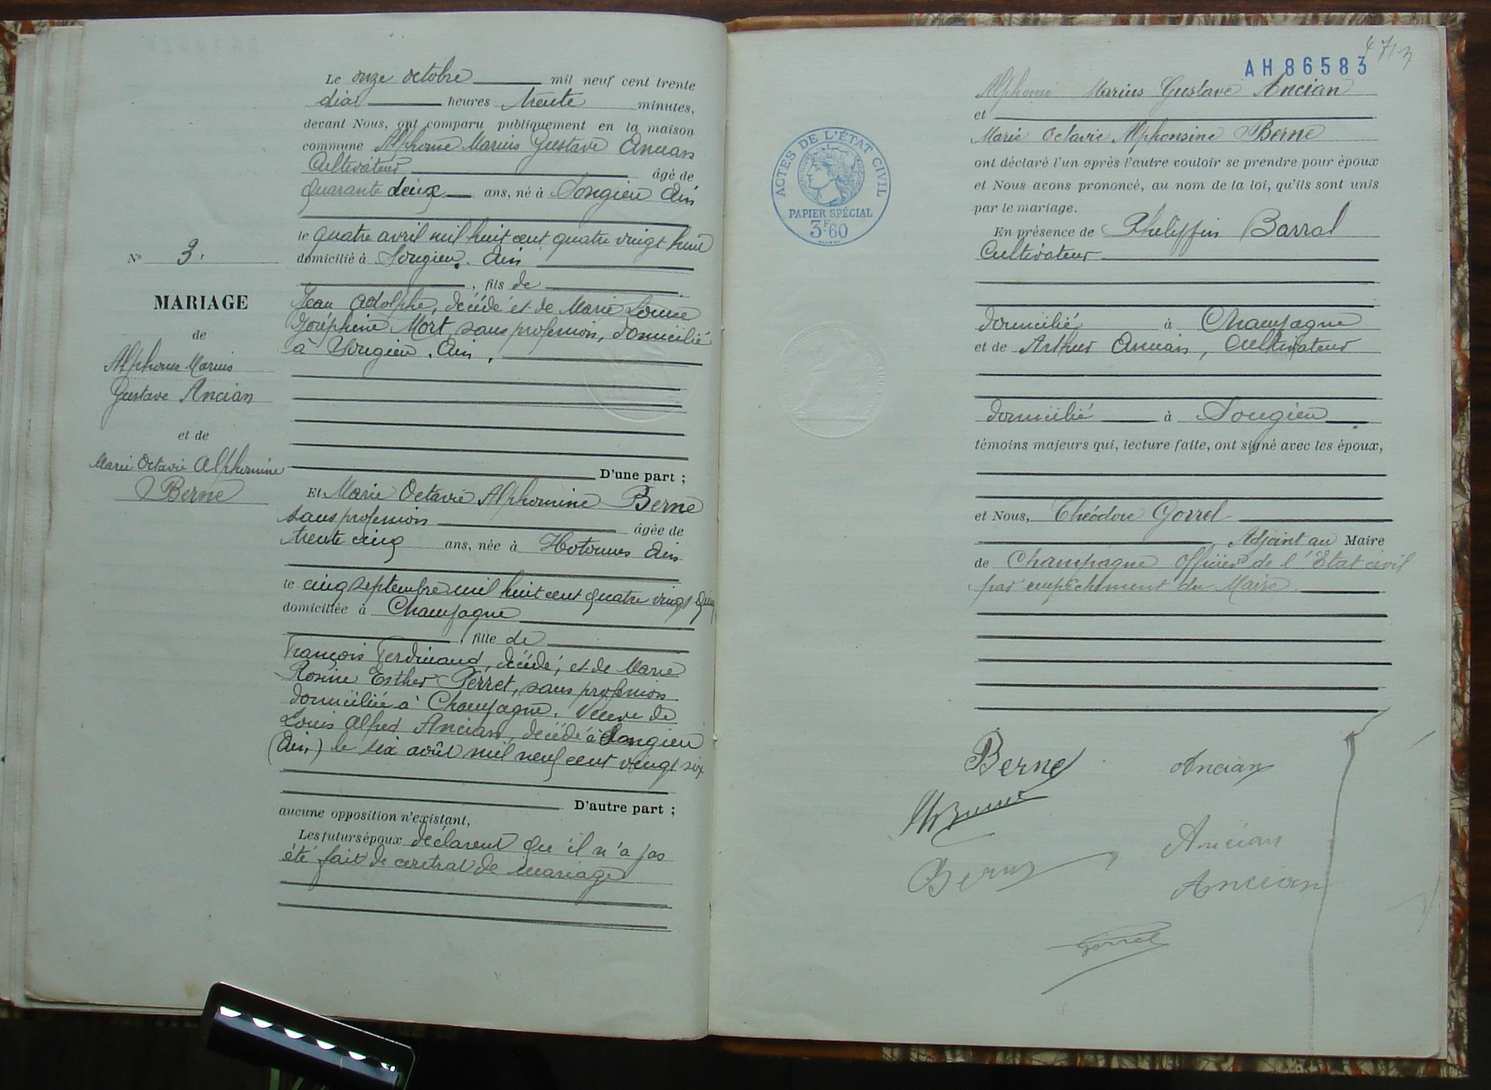 Le onze octobre mil neuf cent trente
dix heures trente minutes,
devant Nous, ont comparu publiquement en la maison
commune Alphonse Marius Gustave Ancian
Cultivateur âgé de
quarante deux ans, né à Songieu Ain
le quatre avril mil huit cent quatre vingt huit
domicilié à Songieu. Ain
, fils de
Jean Adolphe, décédé et de Marie Louise
Joséphine Mort, sans profession, domicilié
à Songieu. Ain,
D'une part ;
N° 3.
MARIAGE
de
Alphonse Marius
Gustave Ancian
et de
Marie Octavie Alphonsine
Berne
Et Marie Octavie Alphonsine Berne
sans profession âgée de
trente cinq ans, née à Hotonnes Ain
le cinq septembre mil huit cent quatre vingt
domiciliée à Champagne
, fille de
François Ferdinand, décédé, et de Marie
Rosine Esther Perret, sans profession
domiciliée à Champagne. Veuve de
Louis Alfred Ancian, décédé à Songieu
(Ain) le six août mil neuf cent vingt six
D'autre part ;
aucune opposition n'existant,
Les futurs époux déclarent que il n'a pas
été fait de contrat de mariage
AH86583
Alphonse Marius Gustave Ancian
et
Marie Octavie Alphonsine Berne
ont déclaré l'un après l'autre vouloir se prendre pour époux
et Nous avons prononcé, au nom de la loi, qu'ils sont unis
par le mariage.
En présence de Barral
Cultivateur
domicilié à Champagne
et de Arthur Ancian, Cultivateur
domicilié à Songieu
témoins majeurs qui, lecture faite, ont signé avec les époux,
et Nous, Théodore Gorrel
Adjoint au Maire
de Champagne Officier de l'Etat civil
par empêchement du Maire
ACTES DE L'ÉTAT CIVIL
PAPIER SPÉCIAL
3F60
Berne Ancian
Ancian
Berne Ancian
Gorrel